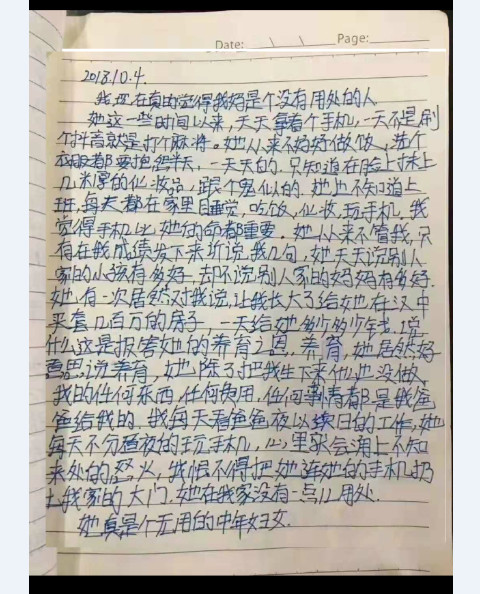 Date:
Page:
2018.10.4.
我现在真的觉得我妈是个没有用处的人
她这一些时间以来,天天拿着个手机,一天不是刷
个抖音就是打个麻将。她从来不好好做饭,洗个
碗都要抱怨半天,一天天的,只知道在脸上抹上
几米厚的化妆品,跟个鬼似的,她也不知道上
班,每天都在家里睡觉,吃饭,化妆,玩手机,我
觉得手机比她的命都重要。她从来不管我,只
有在我成绩发下来就说我几句,她天天说别人
家的小孩有多好,却不说别人家的妈妈有多好.
她有一次居然对我说,让我长大了给她在汉中
买套几百万的房子,一天给她多少多少钱,说
什么这是报答她的养育之恩,养育,她居然好
意思说养育,她除了把我生下来什么也没做,
我的任何东西,任何费用,任何 都是我爸
爸给我的,我每天看爸爸夜以续日的工作,她
每天不分昼夜的玩手机,心里就会涌上不知
来处的怒火,我恨不得把她连她的手机扔
出我家的大门,她在我家没有一点儿用处.
她真是个无用的中年妇女.